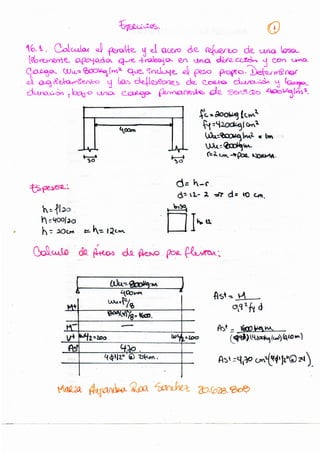 Ejercicios. ①
16.1. Calcular el peralte y el acero de refuerzo de una losa
libremente apoyada que trabaja en una dirección y con una
Carga Wu= 800Kg/m² que incluye el peso propio. Determinar
el agrietamiento y las deflexiones de corta duración y larga
duración, bajo una carga permanente de servicio 400Kg/m².
f'c = 200Kg/cm²
fy = 4200Kg/cm²
Wu= 800Kg/m² * 1m
Wu= 800Kg/m
r= 2cm
4,00m
30
30
Espesor:
h = l/20
h = 400/20
h = 20cm ≈ h = 12cm
d = h-r
d = 12-2 ⇒ d = 10 cm.
h= 12
Calculo de Áreas de Acero por Flexión:
Wu= 800Kg/m
4,00m
M+
M-
V+
As+
4,70
4φ1/2" @
As+ = M / 0,9² fy d
As+ = 1600 Kg.m
As+ = 4,70 cm²
María Alejandra Roa Sanchez 20.628.808